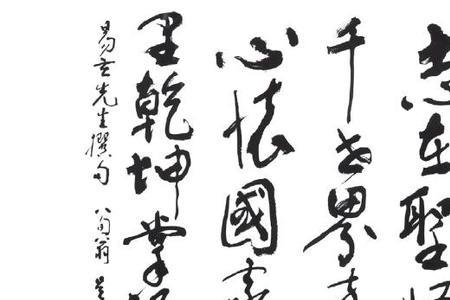 志在聖
千世界
心懷國
里乾坤掌
易玄先生撰句 八旬翁